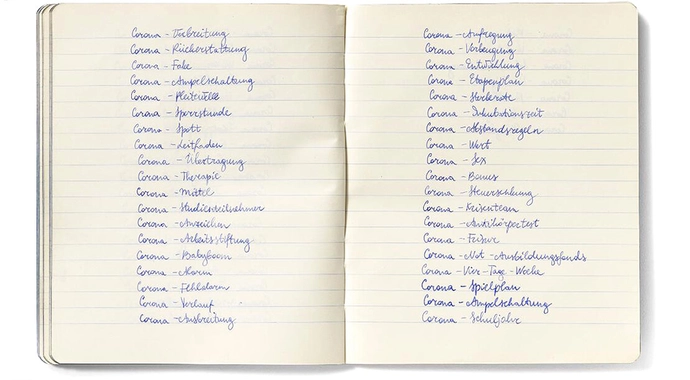 Corona - Vorbereitung
Corona - Rückerstattung
Corona - Fake
Corona - Ampelschaltung
Corona - Pleitewelle
Corona - Sperrstunde
Corona - Spott
Corona - Leitfaden
Corona - Übertragung
Corona - Therapie
Corona - Mittel
Corona - Studienteilnehmer
Corona - Anzeichen
Corona - Arbeitsstiftung
Corona - Babyboom
Corona - Alarm
Corona - Fehlalarm
Corona - Verlauf
Corona - Ausbreitung
Corona - Aufregung
Corona - Vorbeugung
Corona - Entwicklung
Corona - Etappenplan
Corona - Sterberate
Corona - Inkubationszeit
Corona - Abstandsregeln
Corona - Wort
Corona - Sex
Corona - Bonus
Corona - Steuersenkung
Corona - Krisenteam
Corona - Antikörpertest
Corona - Frisur
Corona - Not - Ausbildungsfonds
Corona - Vier - Tage - Woche
Corona - Spielplan
Corona - Ampelschaltung
Corona - Schuljahr